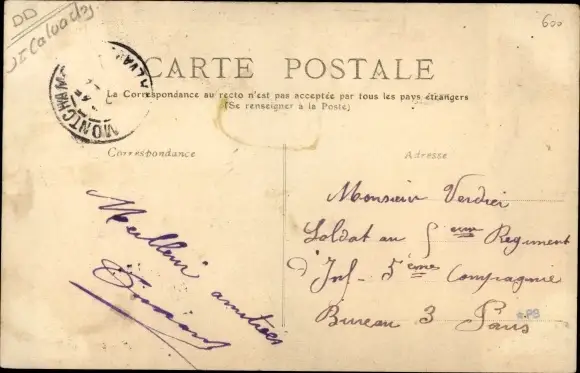 DD
Calvados
600
MONTCHAM
CALVA
CARTE POSTALE
La Correspondance au recto n'est pas acceptée par tous les pays étrangers
(Se renseigner à la Poste)
Correspondance
Adresse
Meilleures amitiés
Monsieur Verdier
Soldat au 5eme Regiment
d'Inf. 5ème Compagnie
Bureau 3 Paris